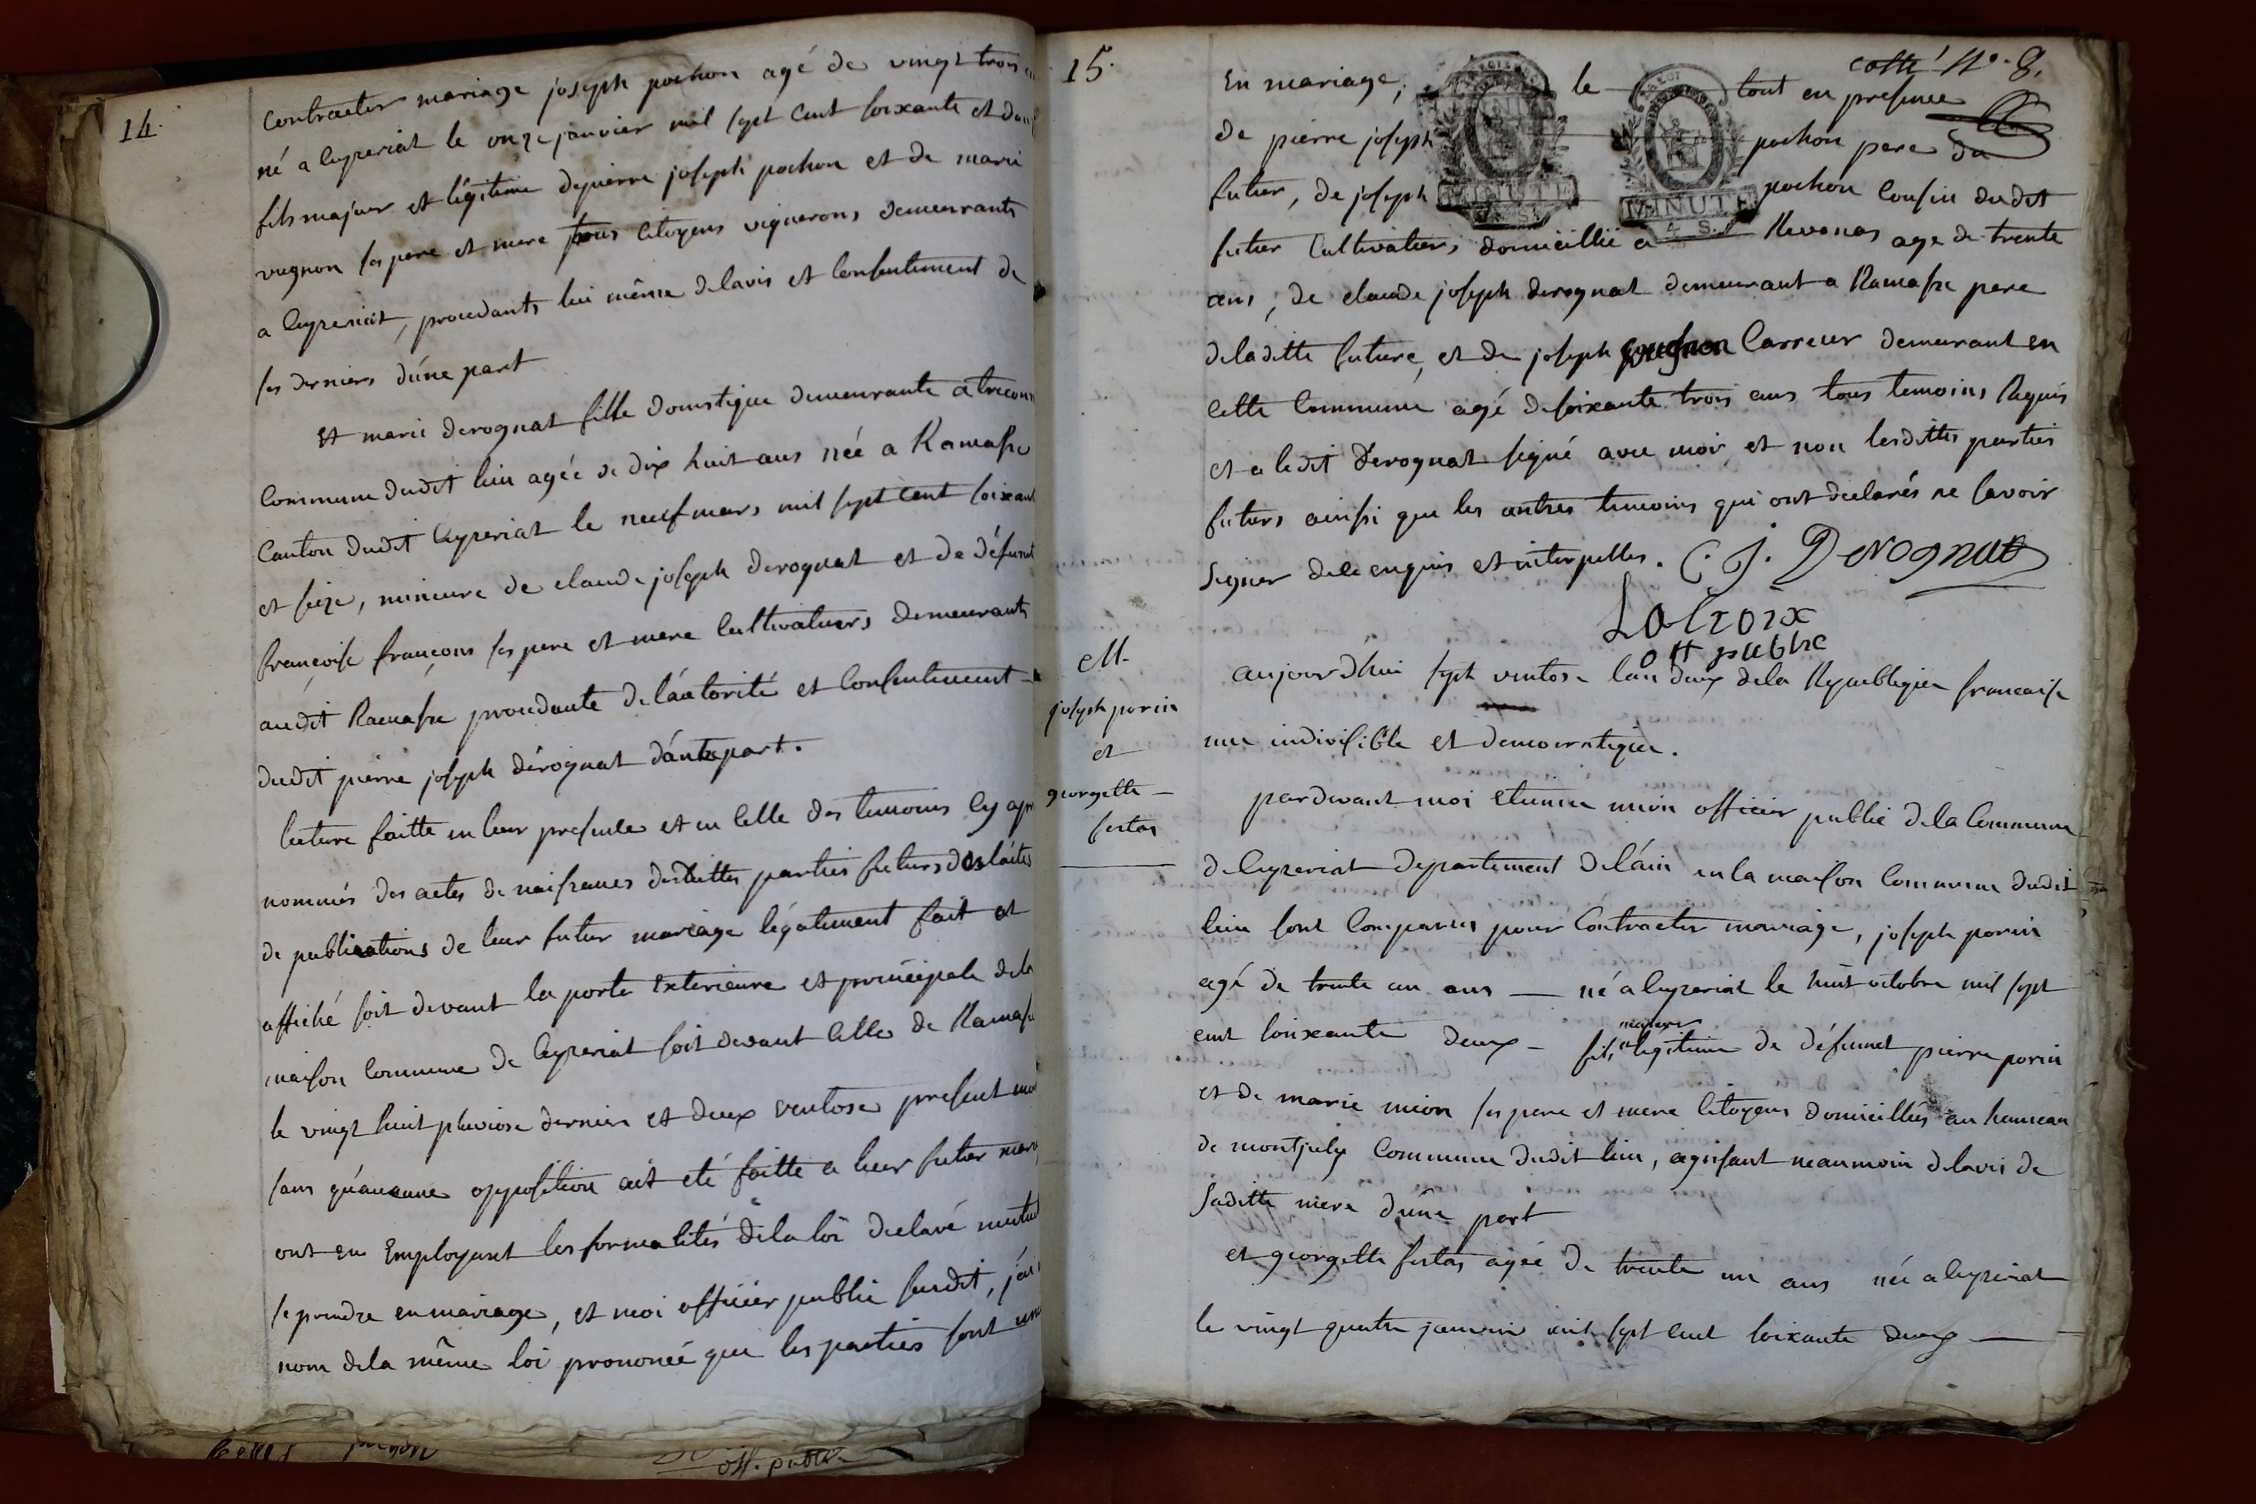 14.
contracter mariage joseph pochon agé de vingt trois
né a Ceyzeriat le onze janvier mil sept cent soixante et
fils majeur et légitime de pierre joseph pochon et de marie
vugnon ses pere et mere tous citoyens vignerons demeurants
a Ceyzeriat, procedants lui même de lavis et consentement de
ses derniers d'úne part
Et marie derognat fille domestique demeurante a
Commune dudit lieu agée de dix huit ans née a Ramasse
Canton dudit Ceyzeriat le neuf mars mil sept cent
et seize, mineure de claude joseph derognat et de
françoise françons ses pere et mere cultivateurs demeurants
audit Ramasse procedante de láutorité et consentement
dudit pierre joseph dérognat dáutrepart.
lecture faitte en leur presence et en celle des temoins cy
nommés des actes de naissances desdittes parties futurs des
de publications de leur futur mariage légalement fait et
affiché soit devant la porte extérieure et principale de la
maison Commune de Ceyzeriat soit devant celle de
le vingt huit pluviose dernier et deux ventose present
sans qu'aucune opposition ait eté faitte a leur futur
ont en Employant les formalités de la loi declaré
se prendre en mariage, et moi officier public susdit,
nom de la même loi prononcé que les parties sont
off. public
15.
cotté No. 8.
En mariage, le tout en presence
de pierre joseph pochon pere du
futur, de joseph pochon cousin dudit
MINUTE
MINUTE
4 S.
futur Cultivateurs domicillié a Revonas age de trente
ans, de claude joseph derognat demeurant a Ramasse pere
de laditte future, et de joseph Carreur demeurant en
cette Commune agé de soixante trois ans tous temoins Requis
et a ledit derognat signé avec moi et non lesdittes parties
futurs ainssi que les autres temoins qui ont declarés ne savoir
signer de ce enquis et interpellés. C. J. Derognat
Lacroix
off public
M.
joseph porin
et
georgette
festas
aujourd'hui sept ventose lan deux de la Republique francaise
une indivisible et democratique.
pardevant moi etienne mion officier public de la Commune
de Ceyzeriat departement de láin en la maison Commune dudit
lieu sont Comparus pour Contracter mariage, joseph porin
agé de trente un ans né a Ceyzeriat le huit octobre mil sept
cent soixante deux fils legitime de défunct pierre porin
majeur
et de marie mion ses pere et mere Citoyens domicilliés au hameau
de montjuly Commune dudit lieu, agissant neanmoin de lavis de
saditte mere d'une part
et georgette festas agée de trente un ans née a Ceyzeriat
le vingt quatre janvier mil sept cent soixante deux